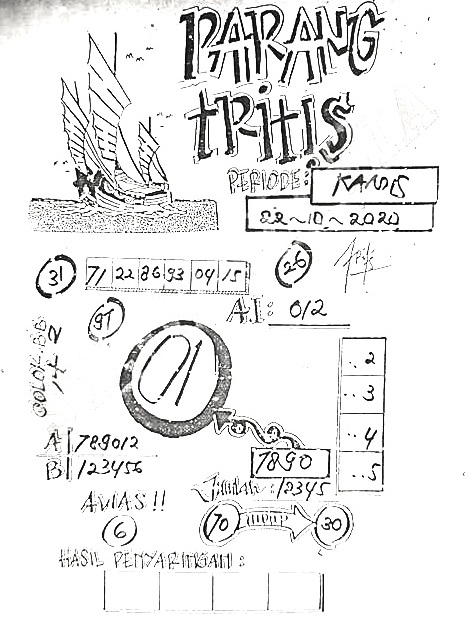 PARANG
TRITIS
PERIODE: KAMIS
22~10~2020
31 71 22 86 93 04 15 26
A.I: 012
97
COLOK.BB
14 2
01
..2
..3
..4
..5
A 789012
B 123456
7890
Jumlah: 12345
AWAS!!
6
70 30
HASIL PENYARINGAN: